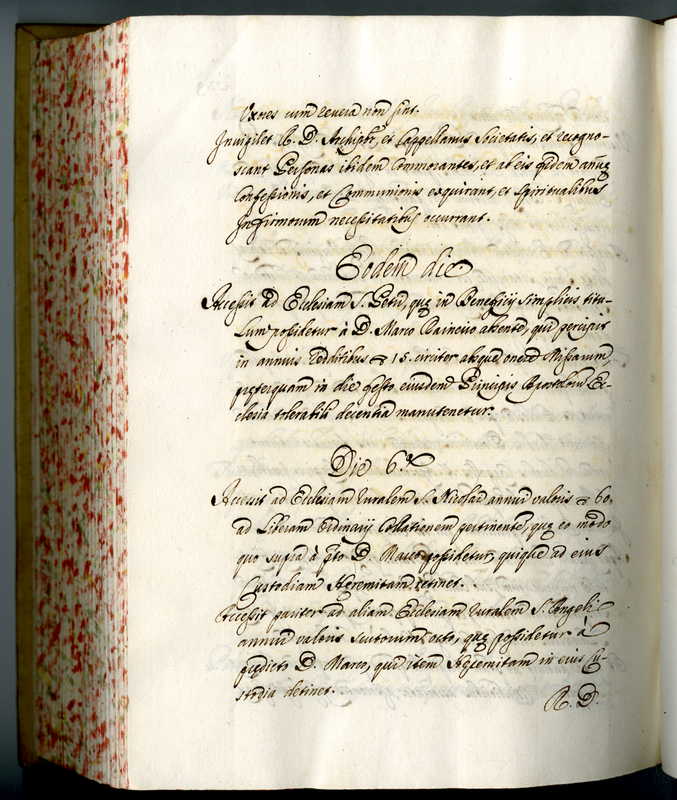 Uxores cum revera non sint.
Invigilet R. D. Archipr, et Cappellanus Societatis, et recogno-
scant Personas ibidem Commorantes, et ab eis qdem
Confessionis, et Communionis exquirant, et Spiritualibus
Infirmorum necessitatibus occurrant.
Eodem die
Accessit ad Ecclesiam S. Petri, quę in Beneficij simplicis titu-
lum possidetur à D. Marco absente, qui percipit
in annuis redditibus 15. circiter absque onere Missarum,
pręterquam in die festo eiusdem Principis Apostolorum Ec-
clesia tolerabili decentia manutenetur.
Die 6.
Accessit ad Ecclesiam ruralem S. Nicolai annui valoris 60.
ad Liberam Ordinarij Collationem pertinente, quę eo modo
quo supra à pto D. Marco possidetur, quique ad eius
Custodiam Heremitam retinet.
Accessit pariter ad aliam Ecclesiam ruralem S. Angeli
annui valoris scutorum octo, quę possidetur à
prędicto D. Marco, qui item Heremitam in eius Cu-
stodia detinet.
R. D.